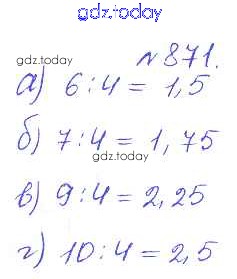 gdz.today
№ 871.
gdz.today
а) 6 : 4 = 1,5
б) 7 : 4 = 1,75
gdz.today
в) 9 : 4 = 2,25
г) 10 : 4 = 2,5
gdz.today